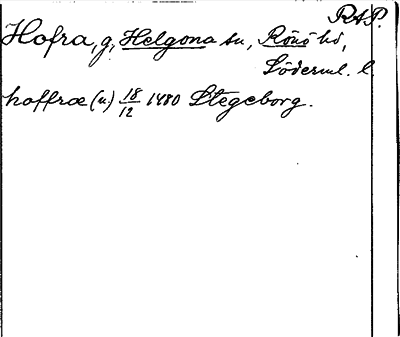 RAP.
Hofra, g, Helgona sn, Rönö hd,
Söderml. l.
hoffræ (u) 18/12 1480 Stegeborg.